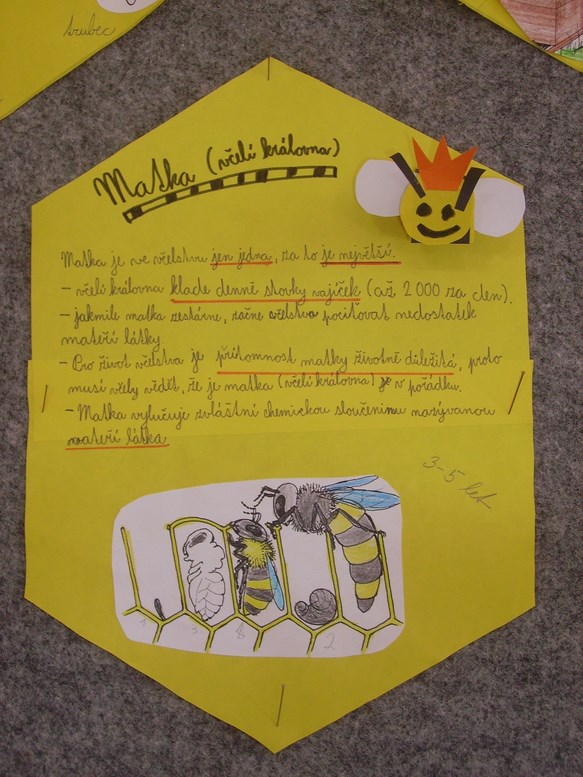 trubec
Matka (včelí královna)
Matka je ve včelstvu jen jedna, za to je největší.
- včelí královna klade denně stovky vajíček (až 2 000 za den).
- jakmile matka zestárne, začne včelstvo pociťovat nedostatek
mateří látky.
- Pro život včelstva je přítomnost matky životně důležitá, proto
musí včely vědět, že je matka (včelí královna) je v pořádku.
- Matka vylučuje zvláštní chemickou sloučeninu nazývanou
mateří látka
3-5 let
1 3 8 2